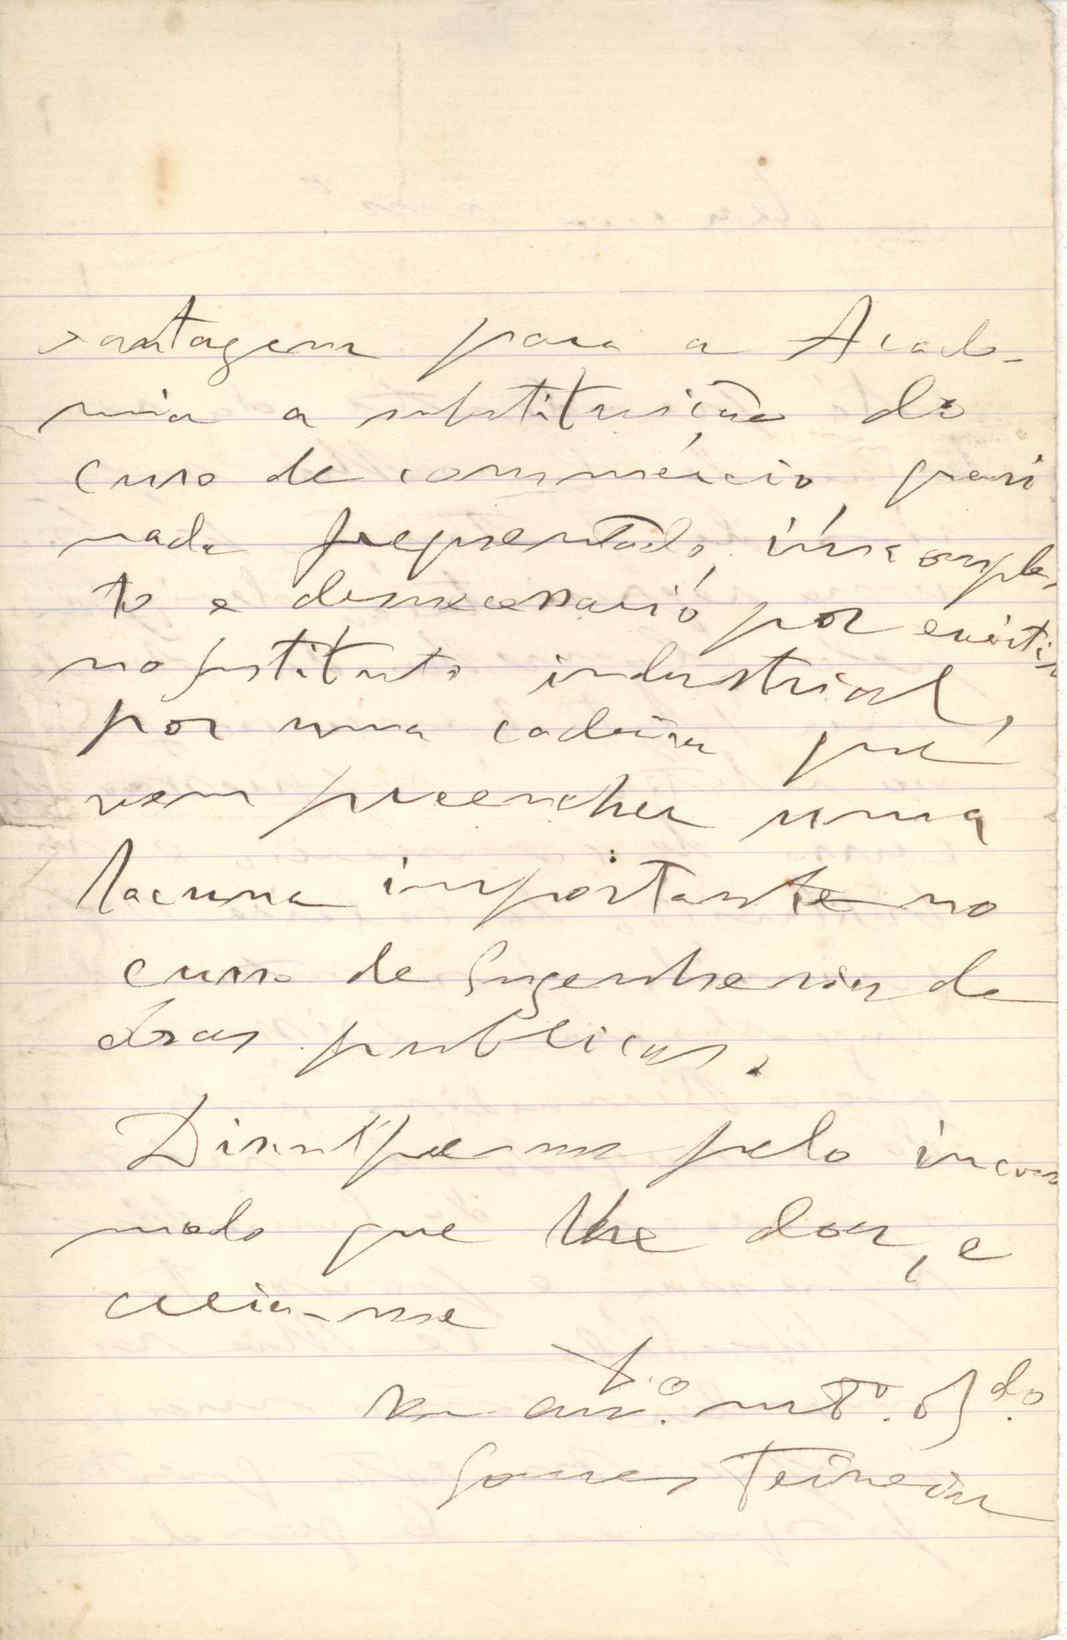 vantagem para a Acade-
mia a substituição do
curso de commércio, quasi
nada frequentado, incomple-
to e desnecessario por existir
no Instituto industrial,
por uma cadeira que
vem preencher uma
lacuna importante no
curso de Engenheria de
obras publicas.
Disculpe-me pelo incom
modo que lhe dou, e
creia-me
De V.
am.º mtº. obgdo.
Gomes Teixeira